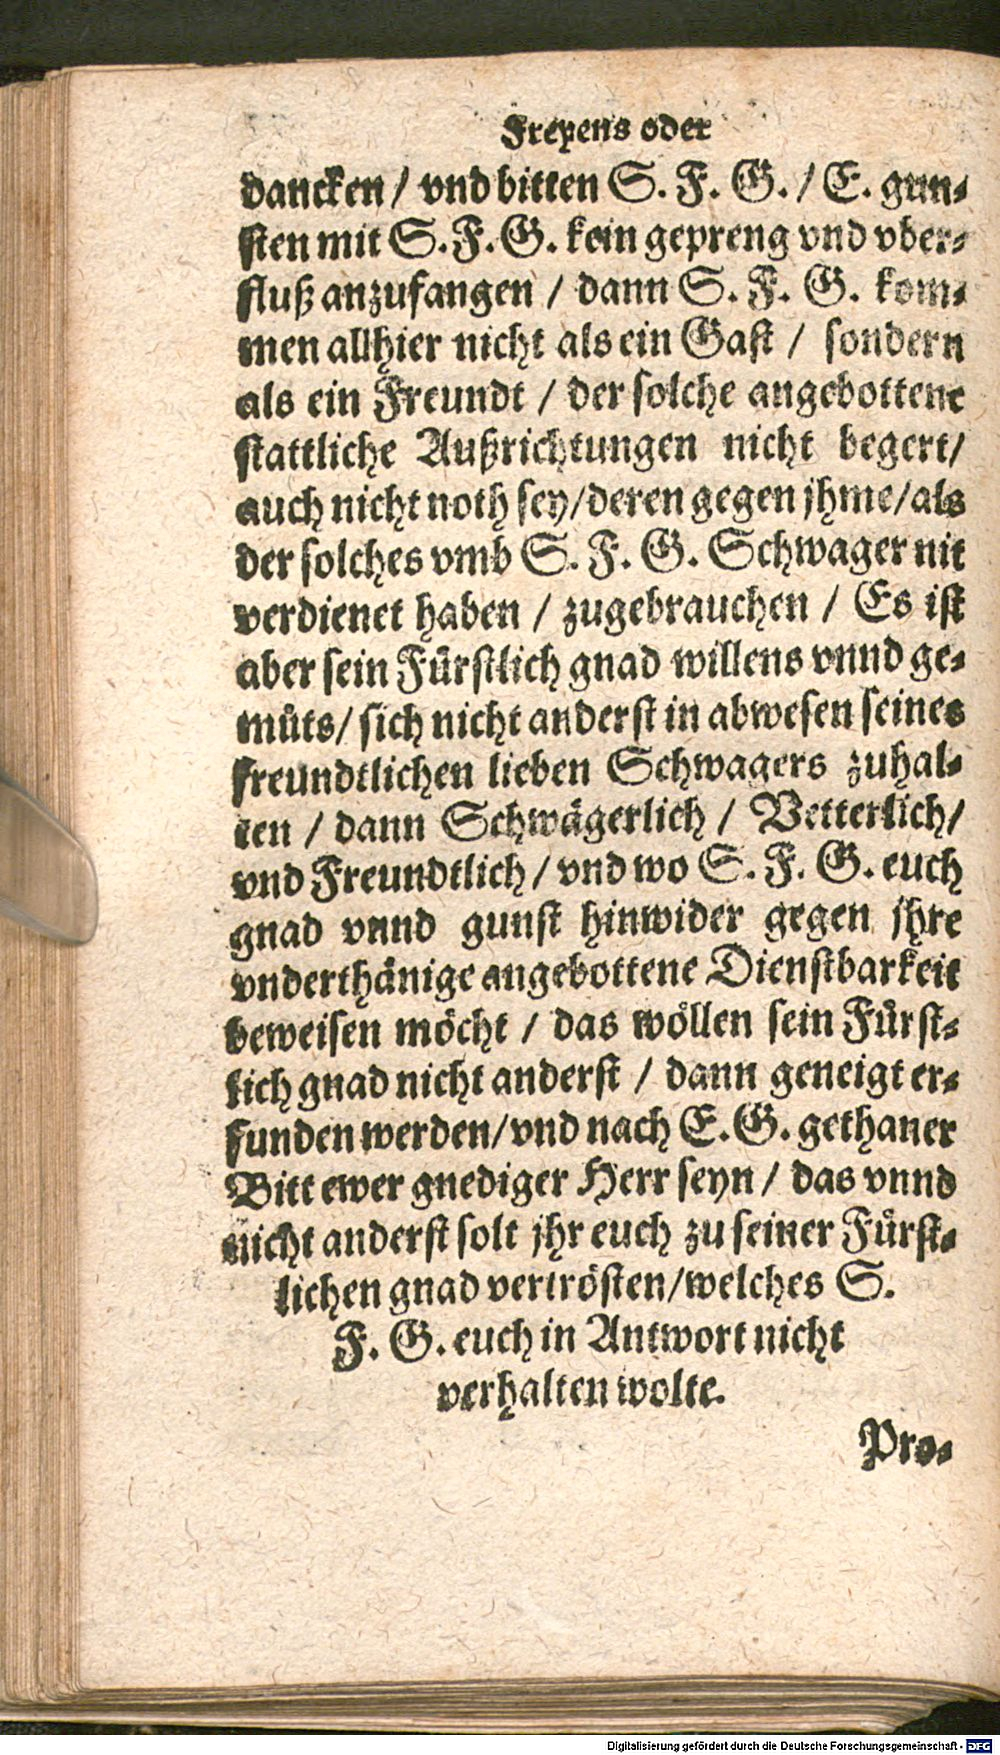 Freyens oder
dancken / vnd bitten S. F. G. / E. gun-
sten mit S. F. G. kein gepreng vnd vber-
fluß anzufangen / dann S. F. G. kom-
men allhier nicht als ein Gast / sondern
als ein Freundt / der solche angebottene
stattliche Außrichtungen nicht begert/
auch nicht noth sey/deren gegen jhme/als
der solches vmb S. F. G. Schwager nit
verdienet haben / zugebrauchen / Es ist
aber sein Fürstlich gnad willens vnnd ge-
müts/ sich nicht anderst in abwesen seines
freundtlichen lieben Schwagers zuhal-
ten / dann Schwägerlich / Vetterlich/
vnd Freundtlich / vnd wo S. F. G. euch
gnad vnnd gunst hinwider gegen jhre
vnderthänige angebottene Dienstbarkeit
beweisen möcht / das wöllen sein Fürst-
lich gnad nicht anderst / dann geneigt er-
funden werden/vnd nach E. G. gethaner
Bitt ewer gnediger Herr seyn / das vnnd
nicht anderst solt jhr euch zu seiner Fürst-
lichen gnad vertrösten/welches S.
F. G. euch in Antwort nicht
verhalten wolte.
Pro-
Digitalisierung gefördert durch die Deutsche Forschungsgemeinschaft - DFG